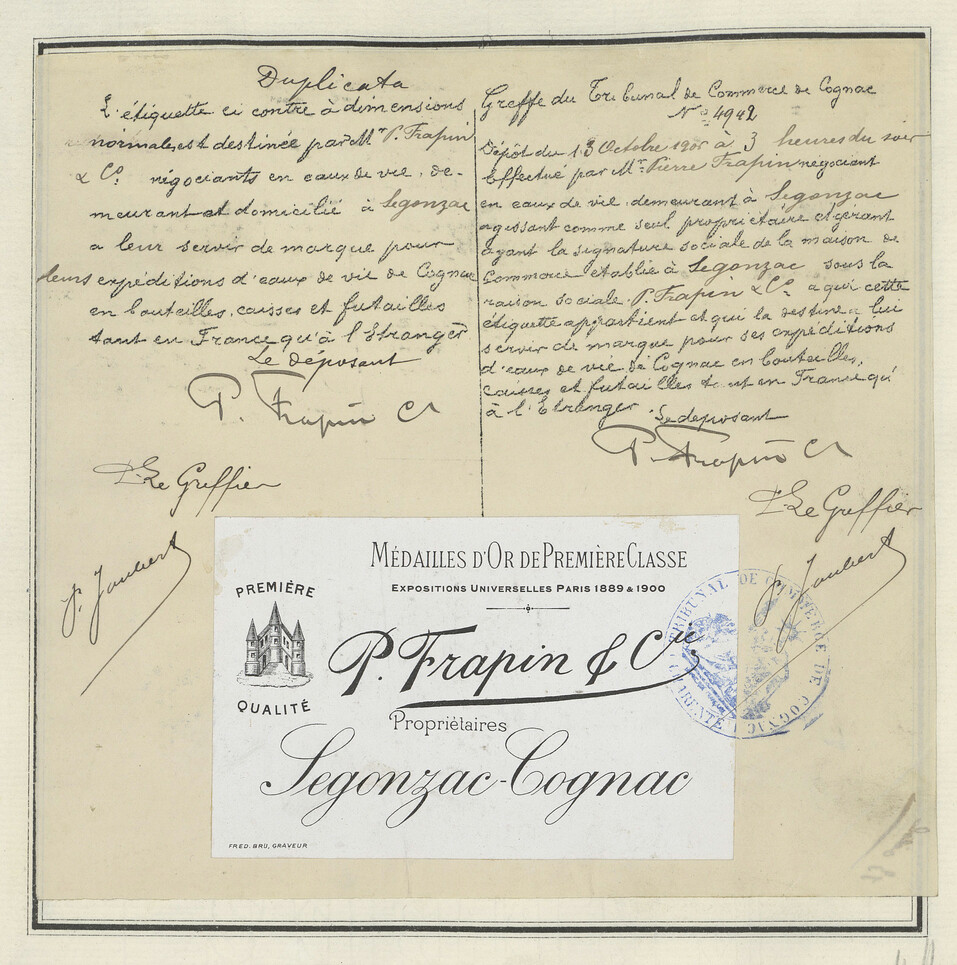 Duplicata
L'étiquette ci contre à dimensions
normales est destinée par Mr P. Frapin
& Co négociants en eaux de vie, de-
meurant et domicilié à Segonzac
a leur servir de marque pour
leurs expéditions d'eaux de vie de Cognac
en bouteilles, caisses et futailles
tant en France qu'à l'Etranger
Le déposant
P. Frapin Cie
Le Greffier
J. Joubert
Greffe du Tribunal de Commerce de Cognac
No 4942
Dépôt du 13 Octobre à 3 heures du soir
Effectué par Mr Pierre Frapin négociant
en eaux de vie demeurant à Segonzac
agissant comme seul propriétaire et gérant
ayant la signature sociale de la maison de
Commerce établie à Segonzac sous la
raison sociale P. Frapin & Co a qui cette
étiquette appartient et qui la destine a lui
servir de marque pour ses expéditions
d'eaux de vie de Cognac en bouteilles,
caisses et futailles tant en France qu'
à l'Etranger Le deposant
P. Frapin Cie
Le Greffier
J. Joubert
MÉDAILLES D'OR DE PREMIÈRE CLASSE
EXPOSITIONS UNIVERSELLES PARIS 1889 & 1900
PREMIÈRE
QUALITÉ
P. Frapin & Cie
Propriétaires
Segonzac-Cognac
FRED. BRU, GRAVEUR
TRIBUNAL DE COMMERCE DE COGNAC
CHARENTE